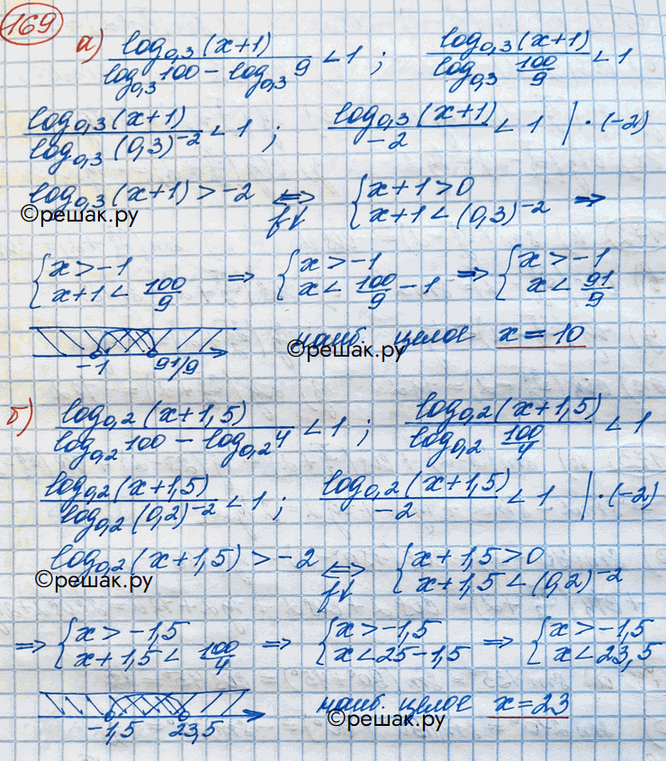 169
а) log_{0,3}(x+1) / (log_{0,3}100 − log_{0,3}9) < 1 ; log_{0,3}(x+1) / log_{0,3}(100/9) < 1
log_{0,3}(x+1) / log_{0,3}(0,3)^{−2} < 1 ; log_{0,3}(x+1) / −2 < 1 | ·(−2)
log_{0,3}(x+1) > −2 ⇔ f↓ { x+1>0 ; x+1<(0,3)^{−2} ⇒
©решак.ру
{ x>−1 ; x+1< 100/9 ⇒ { x>−1 ; x< 100/9 −1 ⇒ { x>−1 ; x< 91/9
−1 91/9 наиб. целое x=10
©решак.ру
б) log_{0,2}(x+1,5) / (log_{0,2}100 − log_{0,2}4) < 1 ; log_{0,2}(x+1,5) / log_{0,2}(100/4) < 1
log_{0,2}(x+1,5) / log_{0,2}(0,2)^{−2} < 1 ; log_{0,2}(x+1,5) / −2 < 1 | ·(−2)
log_{0,2}(x+1,5) > −2 ⇔ f↓ { x+1,5>0 ; x+1,5<(0,2)^{−2}
©решак.ру
⇒ { x>−1,5 ; x+1,5< 100/4 ⇒ { x>−1,5 ; x<25−1,5 ⇒ { x>−1,5 ; x<23,5
−1,5 23,5 наиб. целое x=23
©решак.ру